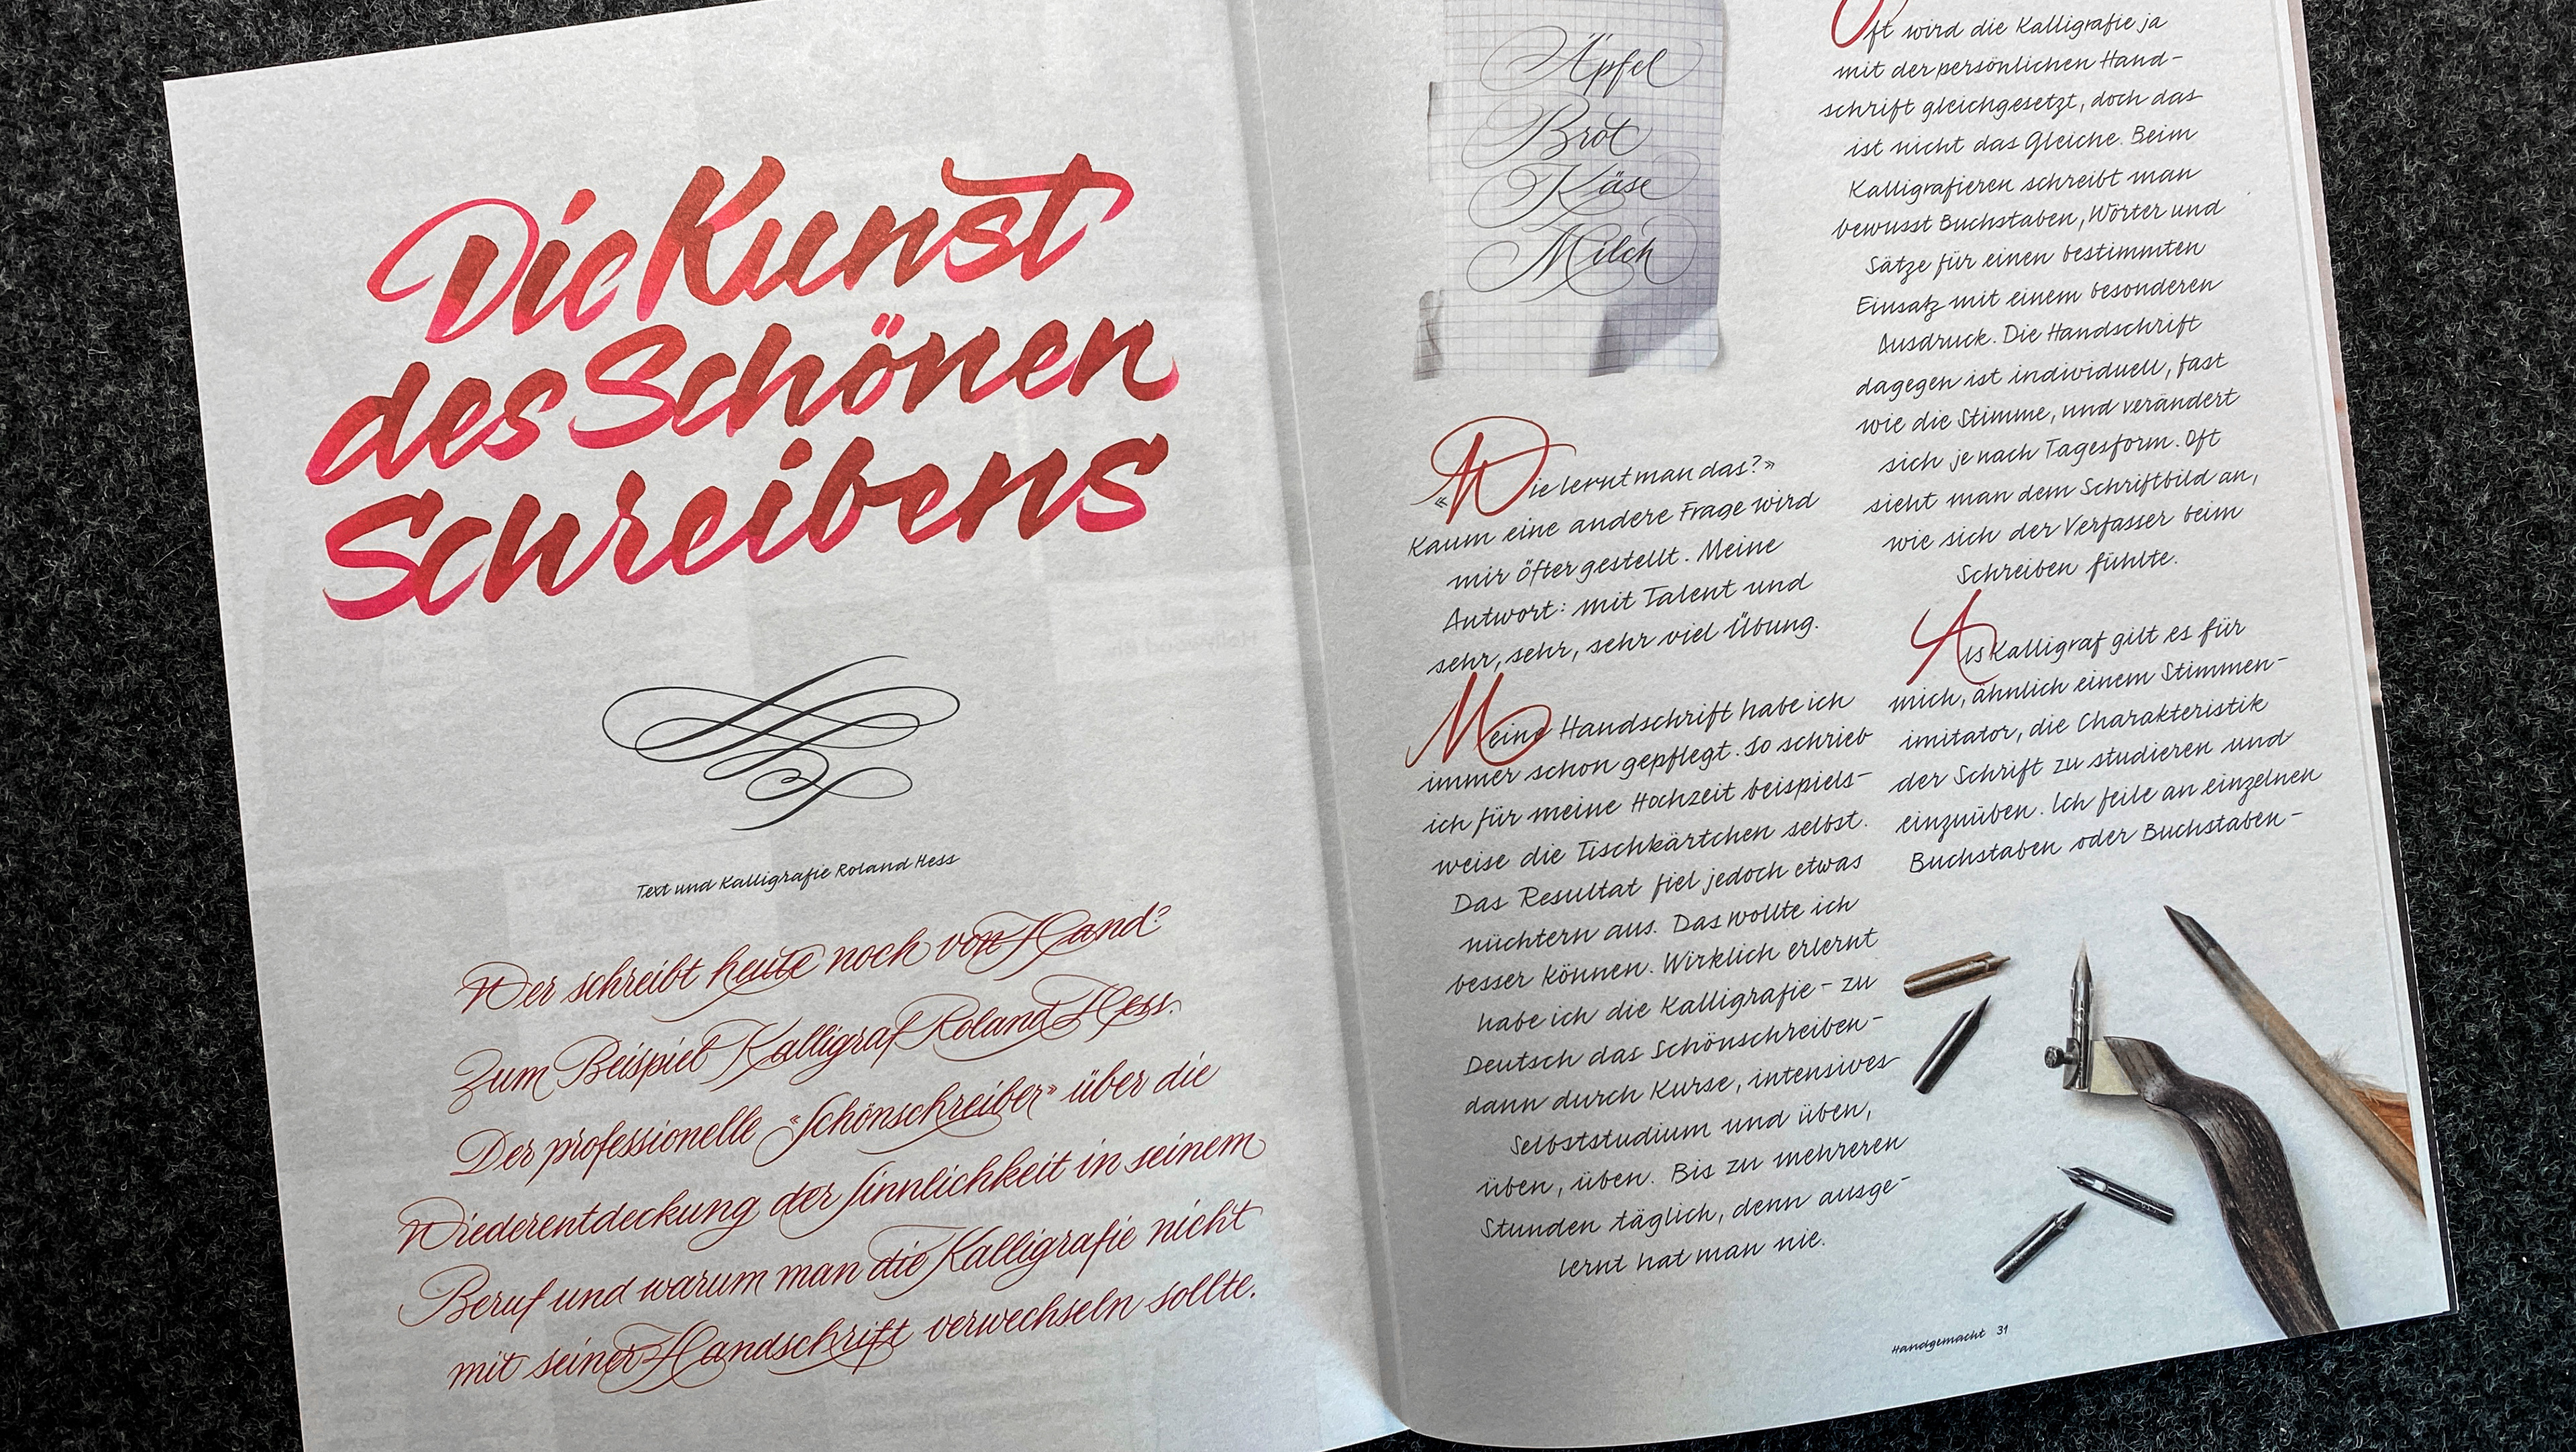 Die Kunst
des Schönen
Schreibens
Text und Kalligrafie Roland Hess
Wer schreibt heute noch von Hand?
Zum Beispiel Kalligraf Roland Hess.
Der professionelle «Schönschreiber» über die
Wiederentdeckung der Sinnlichkeit in seinem
Beruf und warum man die Kalligrafie nicht
mit seiner Handschrift verwechseln sollte.
Äpfel
Brot
Käse
Milch
«Wie lernt man das?»
Kaum eine andere Frage wird
mir öfter gestellt. Meine
Antwort: mit Talent und
sehr, sehr, sehr viel Übung.
Meine Handschrift habe ich
immer schon gepflegt. So schrieb
ich für meine Hochzeit beispiels-
weise die Tischkärtchen selbst.
Das Resultat fiel jedoch etwas
nüchtern aus. Das wollte ich
besser können. Wirklich erlernt
habe ich die Kalligrafie – zu
Deutsch das Schönschreiben –
dann durch Kurse, intensives
Selbststudium und üben,
üben, üben. Bis zu mehreren
Stunden täglich, denn ausge-
lernt hat man nie.
Oft wird die Kalligrafie ja
mit der persönlichen Hand-
schrift gleichgesetzt, doch das
ist nicht das Gleiche. Beim
Kalligrafieren schreibt man
bewusst Buchstaben, Wörter und
Sätze für einen bestimmten
Einsatz mit einem besonderen
Ausdruck. Die Handschrift
dagegen ist individuell, fast
wie die Stimme, und verändert
sich je nach Tagesform. Oft
sieht man dem Schriftbild an,
wie sich der Verfasser beim
Schreiben fühlte.
Als Kalligraf gilt es für
mich, ähnlich einem Stimmen-
imitator, die Charakteristik
der Schrift zu studieren und
einzuüben. Ich feile an einzelnen
Buchstaben oder Buchstaben-
Handgemacht 31